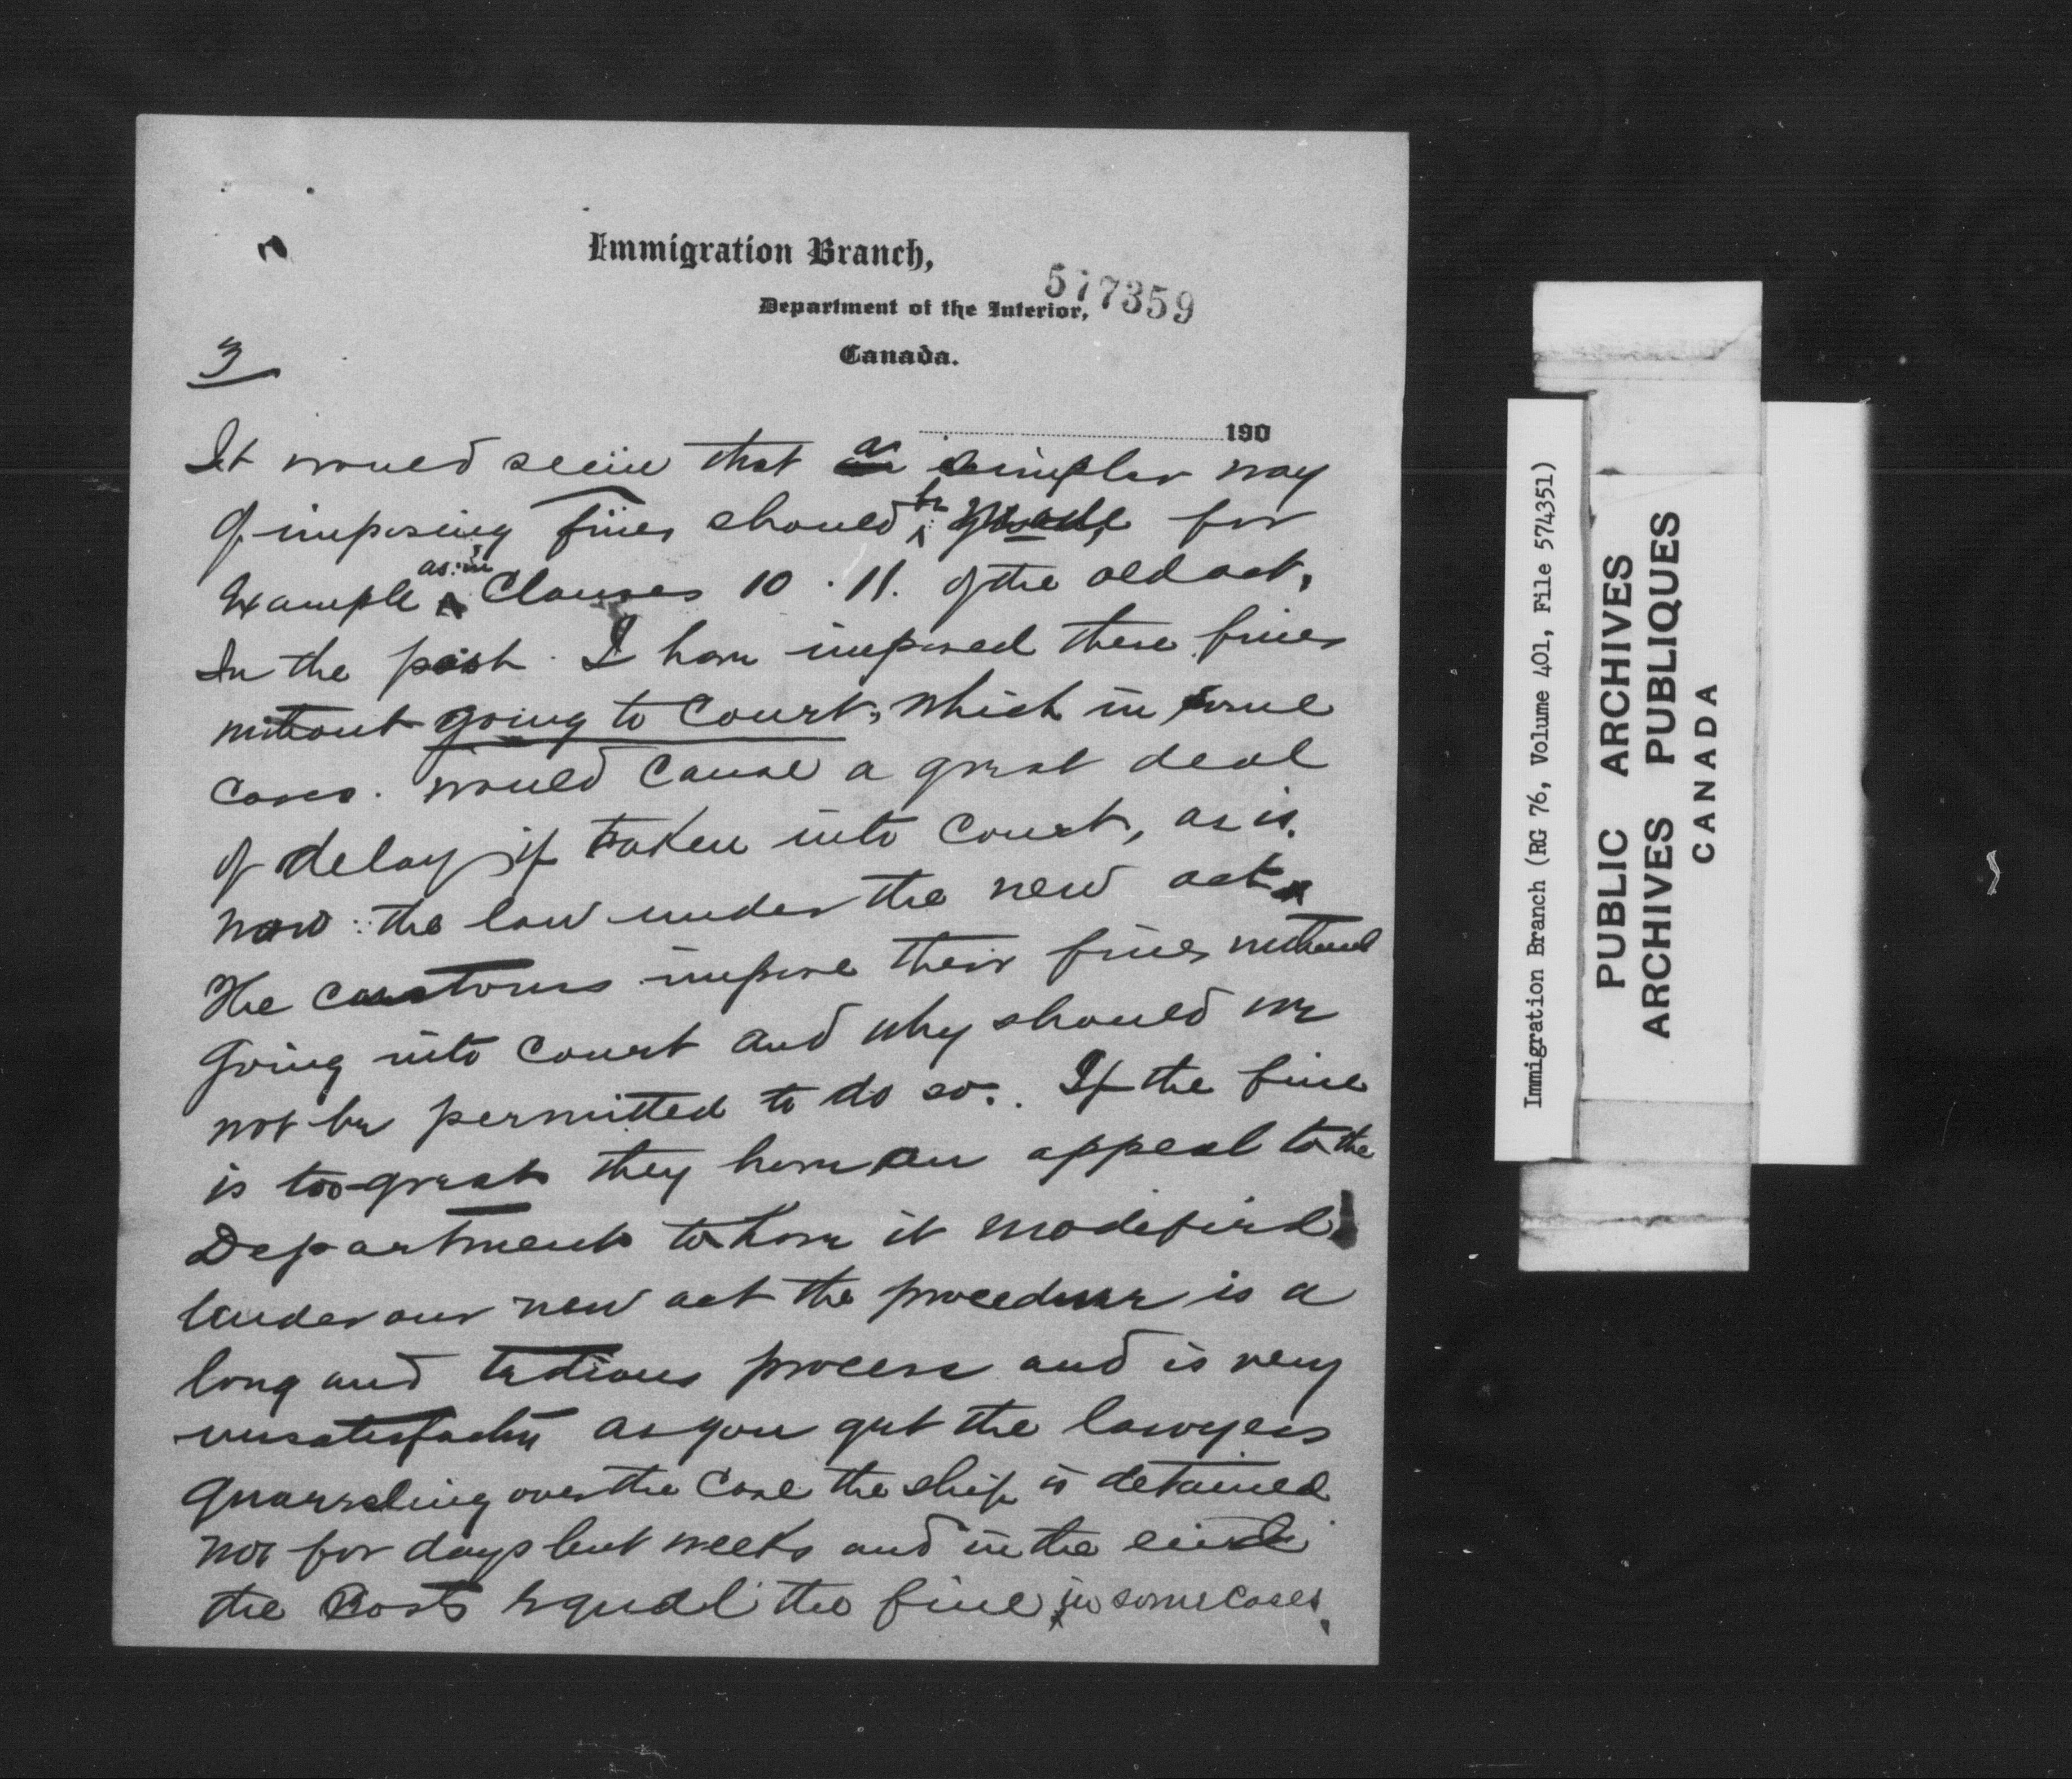 Immigration Branch,
577359
Department of the Interior,
Canada.
3
190
It would seem that a simpler way
of imposing fines should be made for
Example as in Clauses 10 · 11. of the old act,
In the past I have imposed these fines
without going to Court, which in some
cases would cause a great deal
of delay if taken into court, as is
now the law under the new act
The customs impose their fines without
going into Court and why should we
not be permitted to do so. If the fine
is too great they have an appeal to the
Department to have it modified
Under our new act the procedure is a
long and tedious process and is very
unsatisfactory as you get the lawyers
quarreling over the Case the ship is detained
not for days but weeks and in the end
the Costs equal the fine in some cases.
Immigration Branch (RG 76, Volume 401, File 574351)
PUBLIC ARCHIVES
ARCHIVES PUBLIQUES
CANADA